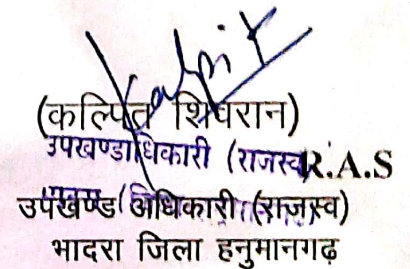 Kalpit
(कल्पित शिवरान)
उपखण्डाधिकारी (राजस्व) R.A.S
उपखण्ड अधिकारी (राजस्व)
भादरा जिला हनुमानगढ़